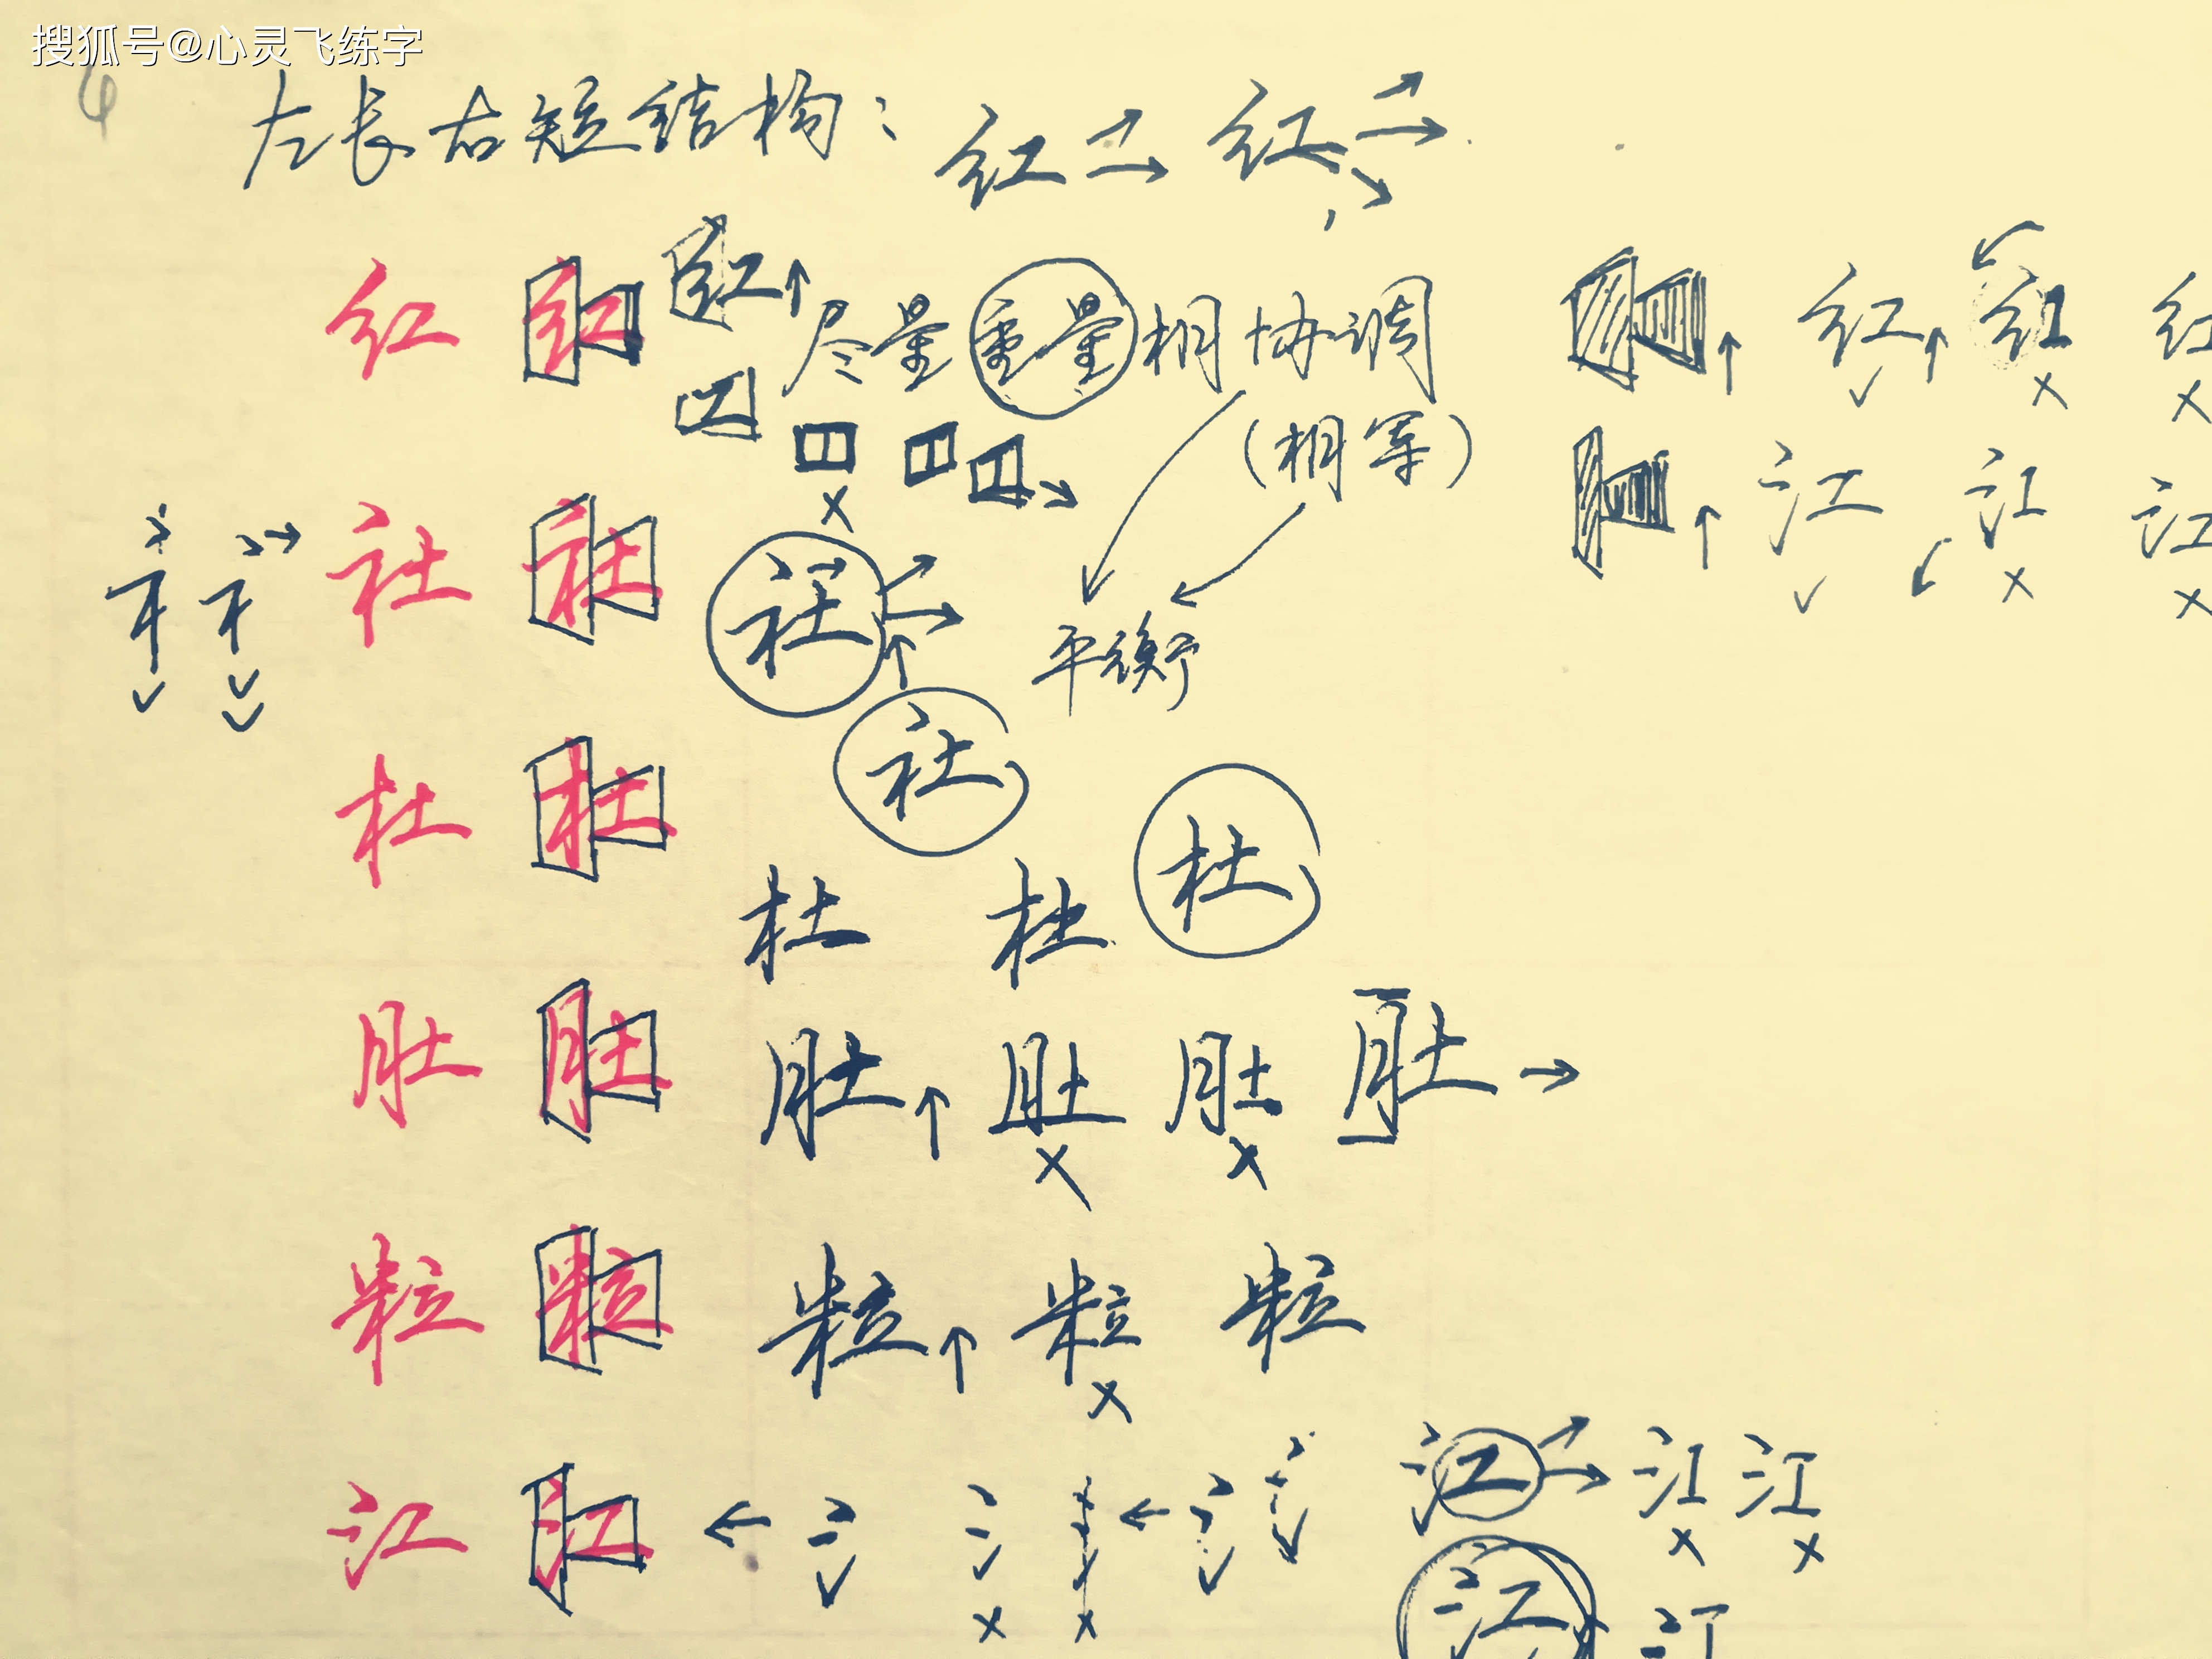 搜狐号@心灵飞练字
4
左长右短结构：红 红
红 红 红 尽量重量相协调 红 红 红
工
(相等)
江 江 江
社 社 社
平衡
社
杜 杜 杜 杜 杜
肚 肚 肚 肚 肚 肚
粒 粒 粒 粒 粒
江 江 氵 氵 氵 氵 江 江 江
江